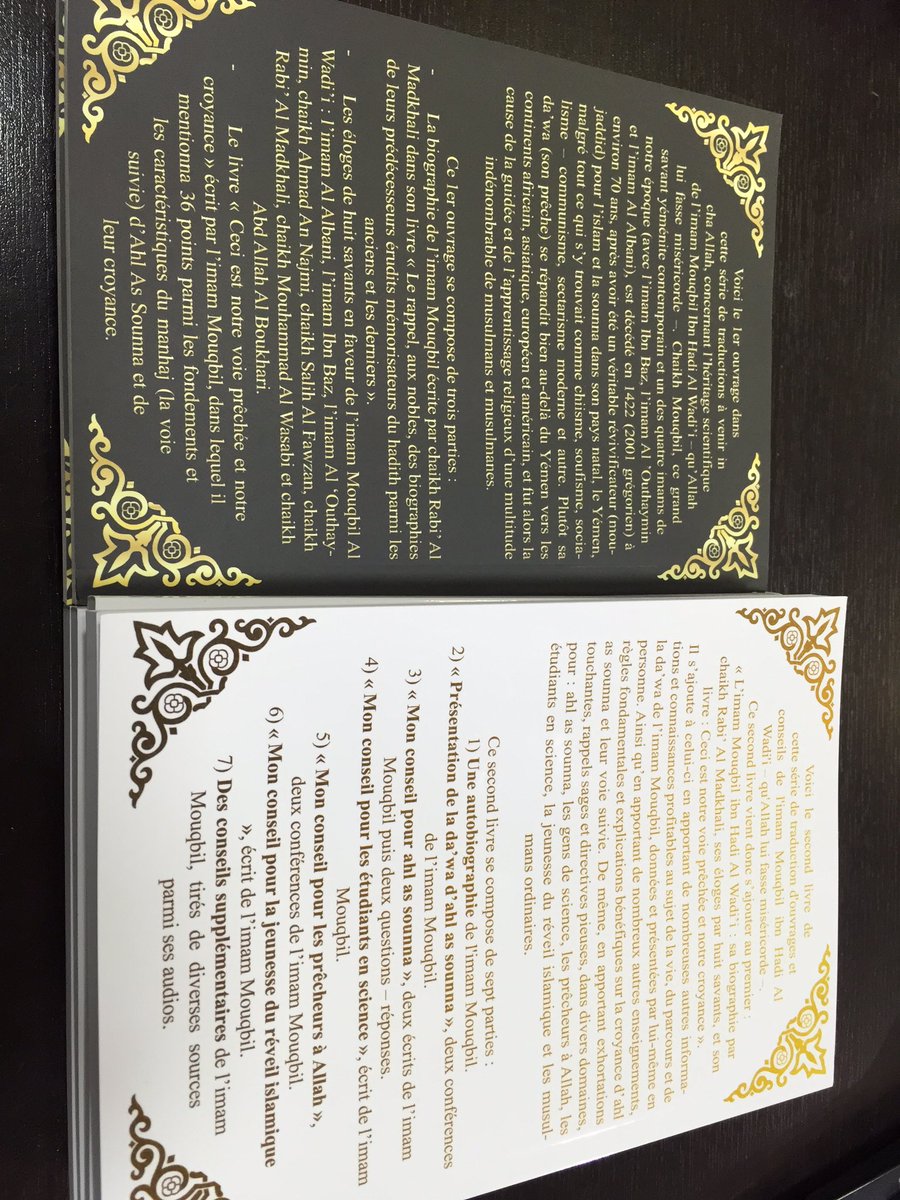 Voici le 1er ouvrage dans
cette série de traductions à venir in
cha Allah, concernant l'héritage scientifique
de l'imam Mouqbil Ibn Hadi Al Wadi'i – qu'Allah
lui fasse miséricorde –. Chaikh Mouqbil, ce grand
savant yéménite contemporain et un des quatre imams de
notre époque (avec l'imam Ibn Baz, l'imam Al 'Outhaymin
et l'imam Al Albani), est décédé en 1422 (2001 grégorien) à
environ 70 ans, après avoir été un véritable révivificateur (mou-
jaddid) pour l'islam et la sonna dans son pays natal, le Yémen,
malgré tout ce qui s'y trouvait comme chiisme, soufisme, socia-
lisme – communisme, sectarisme moderne et autre. Plutôt sa
da'wa (son prêche) se répandit bien au-delà du Yémen vers les
continents africain, asiatique, européen et américain, et fut alors la
cause de la guidée et de l'apprentissage religieux d'une multitude
indénombrable de musulmanes et musulmans.
Ce 1er ouvrage se compose de trois parties :
- La biographie de l'imam Mouqbil écrite par chaikh Rabi' Al
Madkhali dans son livre « Le rappel, aux nobles, des biographies
de leurs prédécesseurs érudits mémorisateurs du hadith parmi les
anciens et les derniers ».
- Les éloges de huit savants en faveur de l'imam Mouqbil Al
Wadi'i : l'imam Al Albani, l'imam Ibn Baz, l'imam Al 'Outhay-
min, chaikh Ahmad An Najmi, chaikh Salih Al Fawzan, chaikh
Rabi' Al Madkhali, chaikh Mouhammad Al Wasabi et chaikh
'Abd Allah Al Boukhari.
- Le livre « Ceci est notre voie prêchée et notre
croyance » écrit par l'imam Mouqbil, dans lequel il
mentionna 36 points parmi les fondements et
les caractéristiques du manhaj (la voie
suivie) d'Ahl As Sounna et de
leur croyance.
Voici le second livre de
cette série de traduction d'ouvrages et
conseils de l'imam Mouqbil ibn Hadi Al
Wadi'i – qu'Allah lui fasse miséricorde –.
Ce second livre vient donc s'ajouter au premier :
« L'imam Mouqbil ibn Hadi Al Wadi'i : sa biographie par
chaikh Rabi' Al Madkhali, ses éloges par huit savants, et son
livre : Ceci est notre voie prêchée et notre croyance ».
Il s'ajoute à celui-ci en apportant de nombreuses autres informa-
tions et connaissances profitables au sujet de la vie, du parcours et de
la da'wa de l'imam Mouqbil, données et présentées par lui-même en
personne. Ainsi qu'en apportant de nombreux autres enseignements,
règles fondamentales et explications bénéfiques sur la croyance d'ahl
as sounna et leur voie suivie. De même, en apportant exhortations
touchantes, rappels sages et directives pieuses, dans divers domaines,
pour : ahl as sounna, les gens de science, les prêcheurs à Allah, les
étudiants en science, la jeunesse du réveil islamique et les musul-
mans ordinaires.
Ce second livre se compose de sept parties :
1) Une autobiographie de l'imam Mouqbil.
2) « Présentation de la da'wa d'ahl as sounna », deux conférences
de l'imam Mouqbil.
3) « Mon conseil pour ahl as sounna », deux écrits de l'imam
Mouqbil puis deux questions – réponses.
4) « Mon conseil pour les étudiants en science », écrit de l'imam
Mouqbil.
5) « Mon conseil pour les prêcheurs à Allah »,
deux conférences de l'imam Mouqbil.
6) « Mon conseil pour la jeunesse du réveil islamique
», écrit de l'imam Mouqbil.
7) Des conseils supplémentaires de l'imam
Mouqbil, tirés de diverses sources
parmi ses audios.